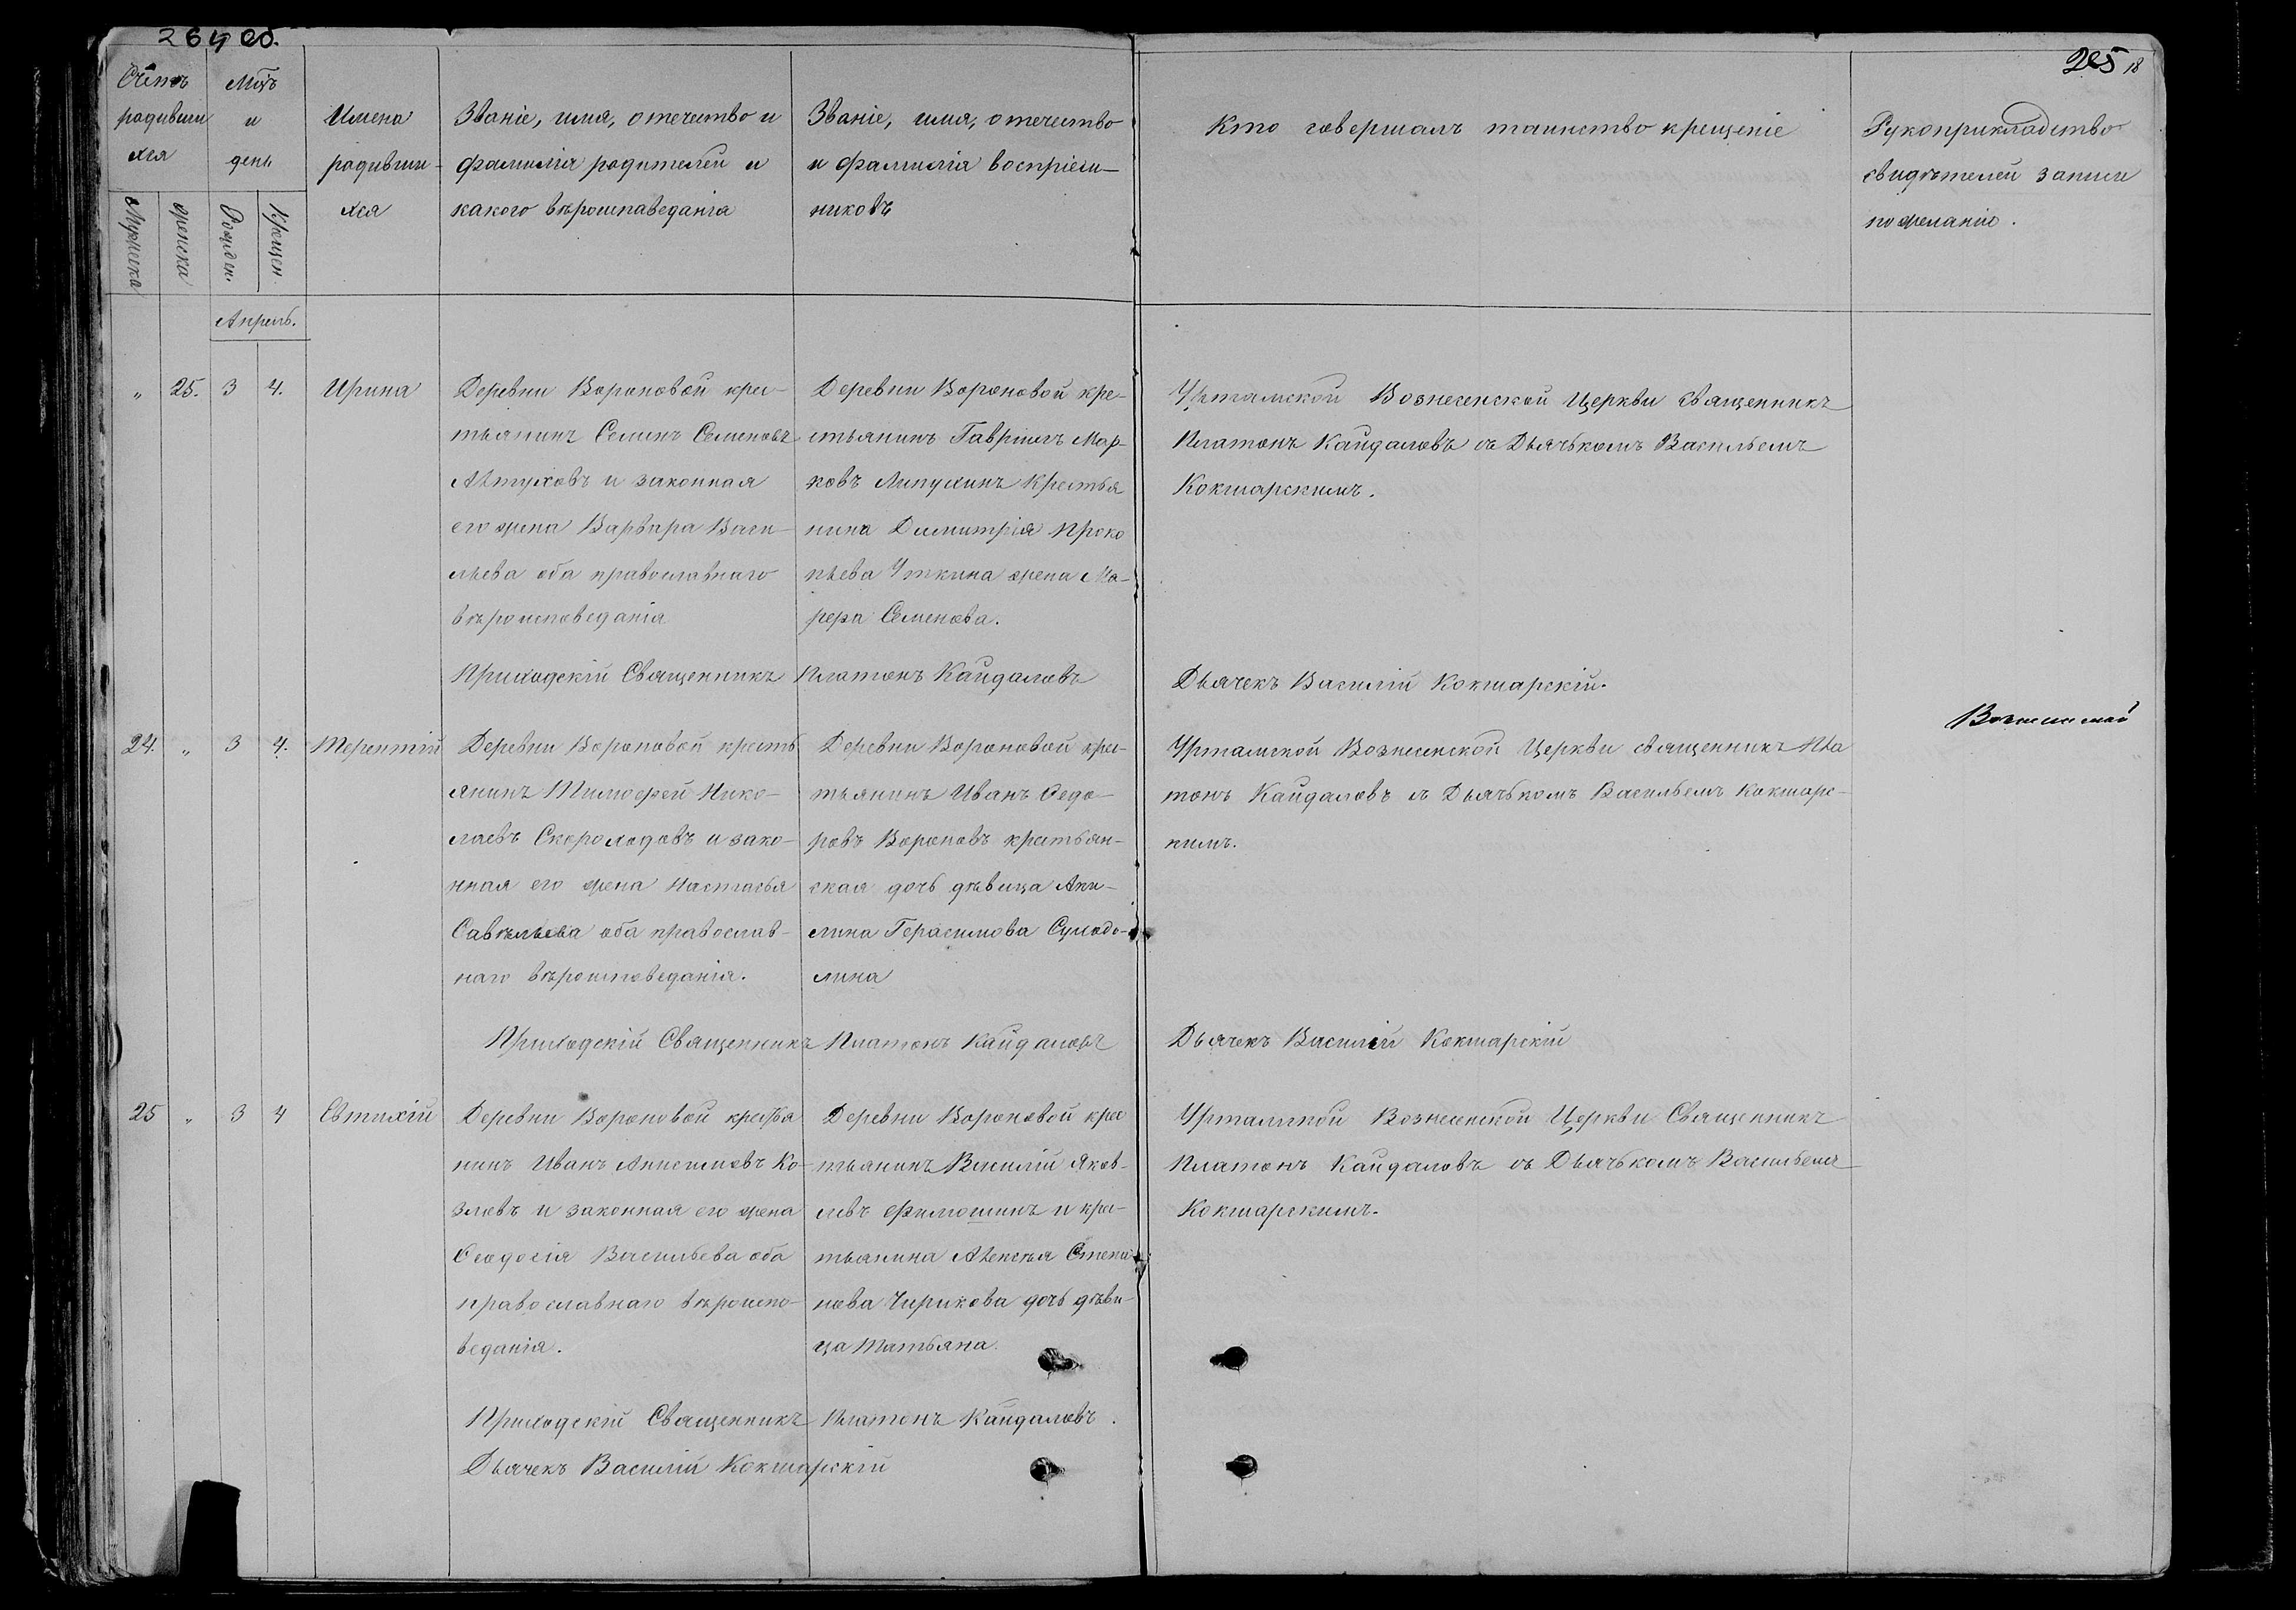 264 об.
265 18
Счётъ
родивши
хся
Мужеска
женска
Мцъ
и
день
Рожден.
Крещен.
Имена
родивши-
хся
Званіе, имя, отечество и
фамилія родителей и
какого вѣроисповеданія
Званіе, имя, отечество
и фамилія воспріем-
никовъ
Кто совершалъ таинство крещеніе
Рукоприкладство
свидѣтелей записи
по желанію.
Апрель.
„ 25. 3 4. Ирина
Деревни Вороновой крес-
тьянинъ Семенъ Семеновъ
Алтуховъ и законная
его жена Варвара Васи-
льева оба православнаго
вѣроисповеданія
Деревни Вороновой кре-
стьянинъ Гавріилъ Мар-
ковъ Липухинъ Крестья
нина Димитрія Проко
пьева Уткина жена Ма-
рфа Семенова.
Уртамской Вознесенской Церкви Священникъ
Платонъ Кайдаловъ съ Дьячькомъ Васильемъ
Кокшарскимъ.
Приходскій Священникъ Платонъ Кайдаловъ
Дьячекъ Василій Кокшарскій.
24. „ 3 4. Терентій
Деревни Вороновой кресть
янинъ Тимофей Нико-
лаевъ Скороходовъ и зако-
нная его жена Настасья
Савельева оба православ-
наго вѣроисповеданія.
Деревни Вороновой крес-
тьянинъ Иванъ Федо-
ровъ Вороновъ крестьян-
ская дочь дѣвица Аку-
лина Герасимова Суходо-
лина
Уртамской Вознесенской Церкви священникъ Пла
тонъ Кайдаловъ съ Дьячькомъ Васильемъ Кокшарс-
кимъ.
Приходскій Священникъ Платонъ Кайдаловъ
Дьячекъ Василій Кокшарскій
25 „ 3 4 Евтихій
Деревни Вороновой крестья
нинъ Иванъ Анисимовъ Ко-
зловъ и законная его жена
Феодосія Васильева оба
православнаго вѣроиспо-
веданія.
Деревни Вороновой крес
тьянинъ Василій Яков-
левъ Филюшинъ и крес-
тьянина Алексѣя Степа
нова Чирикова дочь дѣви-
ца Татьяна.
Уртамской Вознесенской Церкви Священникъ
Платонъ Кайдаловъ съ Дьячькомъ Васильемъ
Кокшарскимъ.
Приходскій Священникъ Платонъ Кайдаловъ.
Дьячекъ Василій Кокшарскій